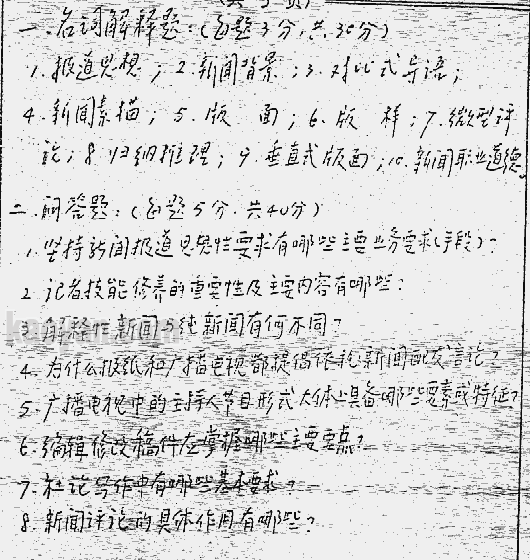 (共 3 页)
一.名词解释题:(每题3分,共30分)
1.报道思想;2.新闻背景;3.对比式导语;
4.新闻素描;5.版 面;6.版 样;7.微型评
论;8.归纳推理;9.垂直式版面;10.新闻职业道德。
二.问答题:(每题5分.共40分)
1.坚持新闻报道思想性要求有哪些主要业务要求(手段)?
2 记者技能修养的重要性及主要内容有哪些?
3.解释性新闻与纯新闻有何不同?
4.为什么报纸和广播电视都提倡依托新闻配发言论?
5.广播电视中的主持人节目形式大体上具备哪些要素或特征?
6.编辑修改稿件应掌握哪些主要要点?
7.社论写作中有哪些基本要求?
8.新闻评论的具体作用有哪些?